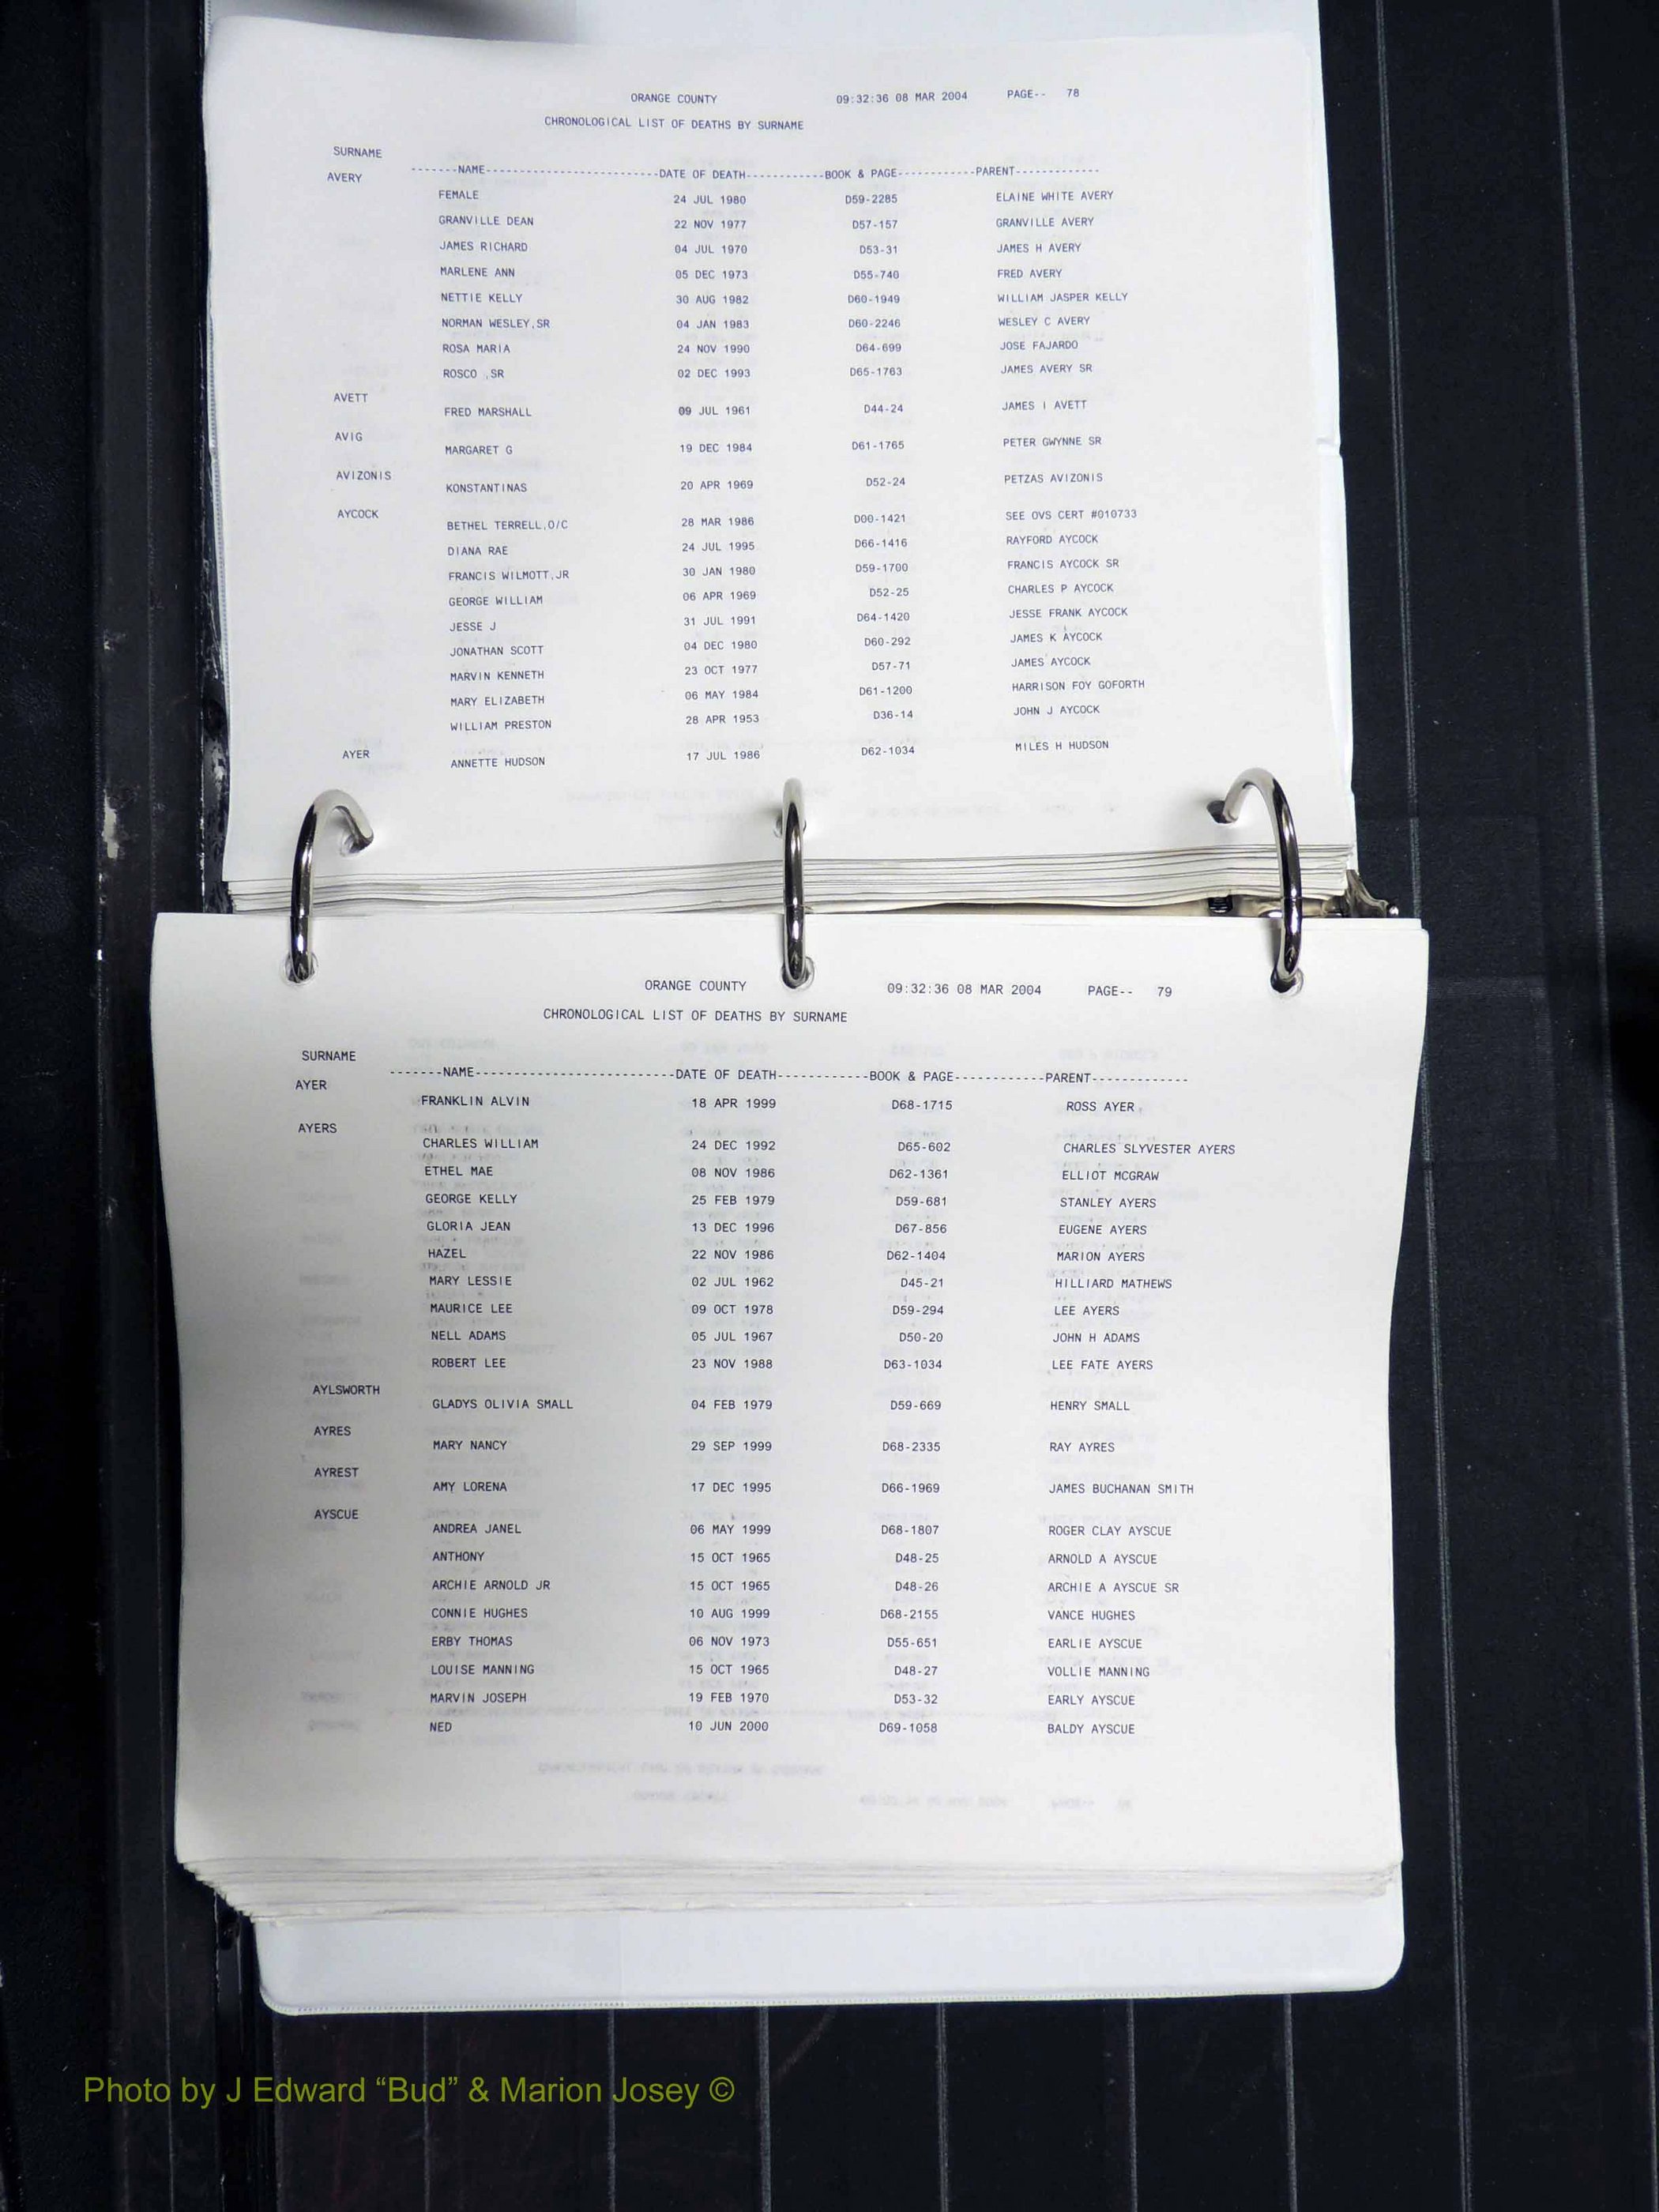 ORANGE COUNTY 09:32:36 08 MAR 2004 PAGE-- 78
CHRONOLOGICAL LIST OF DEATHS BY SURNAME
SURNAME
-------NAME-------------------------DATE OF DEATH-----------BOOK & PAGE-----------PARENT-------------
AVERY
FEMALE 24 JUL 1980 D59-2285 ELAINE WHITE AVERY
GRANVILLE DEAN 22 NOV 1977 D57-157 GRANVILLE AVERY
JAMES RICHARD 04 JUL 1970 D53-31 JAMES H AVERY
MARLENE ANN 05 DEC 1973 D55-740 FRED AVERY
NETTIE KELLY 30 AUG 1982 D60-1949 WILLIAM JASPER KELLY
NORMAN WESLEY,SR 04 JAN 1983 D60-2246 WESLEY C AVERY
ROSA MARIA 24 NOV 1990 D64-699 JOSE FAJARDO
ROSCO ,SR 02 DEC 1993 D65-1763 JAMES AVERY SR
AVETT
FRED MARSHALL 09 JUL 1961 D44-24 JAMES I AVETT
AVIG
MARGARET G 19 DEC 1984 D61-1765 PETER GWYNNE SR
AVIZONIS
KONSTANTINAS 20 APR 1969 D52-24 PETZAS AVIZONIS
AYCOCK
BETHEL TERRELL,O/C 28 MAR 1986 D00-1421 SEE OVS CERT #010733
DIANA RAE 24 JUL 1995 D66-1416 RAYFORD AYCOCK
FRANCIS WILMOTT,JR 30 JAN 1980 D59-1700 FRANCIS AYCOCK SR
GEORGE WILLIAM 06 APR 1969 D52-25 CHARLES P AYCOCK
JESSE J 31 JUL 1991 D64-1420 JESSE FRANK AYCOCK
JONATHAN SCOTT 04 DEC 1980 D60-292 JAMES K AYCOCK
MARVIN KENNETH 23 OCT 1977 D57-71 JAMES AYCOCK
MARY ELIZABETH 06 MAY 1984 D61-1200 HARRISON FOY GOFORTH
WILLIAM PRESTON 28 APR 1953 D36-14 JOHN J AYCOCK
AYER
ANNETTE HUDSON 17 JUL 1986 D62-1034 MILES H HUDSON
ORANGE COUNTY 09:32:36 08 MAR 2004 PAGE-- 79
CHRONOLOGICAL LIST OF DEATHS BY SURNAME
SURNAME
-------NAME-------------------------DATE OF DEATH-----------BOOK & PAGE-----------PARENT-------------
AYER
FRANKLIN ALVIN 18 APR 1999 D68-1715 ROSS AYER
AYERS
CHARLES WILLIAM 24 DEC 1992 D65-602 CHARLES SLYVESTER AYERS
ETHEL MAE 08 NOV 1986 D62-1361 ELLIOT MCGRAW
GEORGE KELLY 25 FEB 1979 D59-681 STANLEY AYERS
GLORIA JEAN 13 DEC 1996 D67-856 EUGENE AYERS
HAZEL 22 NOV 1986 D62-1404 MARION AYERS
MARY LESSIE 02 JUL 1962 D45-21 HILLIARD MATHEWS
MAURICE LEE 09 OCT 1978 D59-294 LEE AYERS
NELL ADAMS 05 JUL 1967 D50-20 JOHN H ADAMS
ROBERT LEE 23 NOV 1988 D63-1034 LEE FATE AYERS
AYLSWORTH
GLADYS OLIVIA SMALL 04 FEB 1979 D59-669 HENRY SMALL
AYRES
MARY NANCY 29 SEP 1999 D68-2335 RAY AYRES
AYREST
AMY LORENA 17 DEC 1995 D66-1969 JAMES BUCHANAN SMITH
AYSCUE
ANDREA JANEL 06 MAY 1999 D68-1807 ROGER CLAY AYSCUE
ANTHONY 15 OCT 1965 D48-25 ARNOLD A AYSCUE
ARCHIE ARNOLD JR 15 OCT 1965 D48-26 ARCHIE A AYSCUE SR
CONNIE HUGHES 10 AUG 1999 D68-2155 VANCE HUGHES
ERBY THOMAS 06 NOV 1973 D55-651 EARLIE AYSCUE
LOUISE MANNING 15 OCT 1965 D48-27 VOLLIE MANNING
MARVIN JOSEPH 19 FEB 1970 D53-32 EARLY AYSCUE
NED 10 JUN 2000 D69-1058 BALDY AYSCUE
Photo by J Edward “Bud” & Marion Josey ©